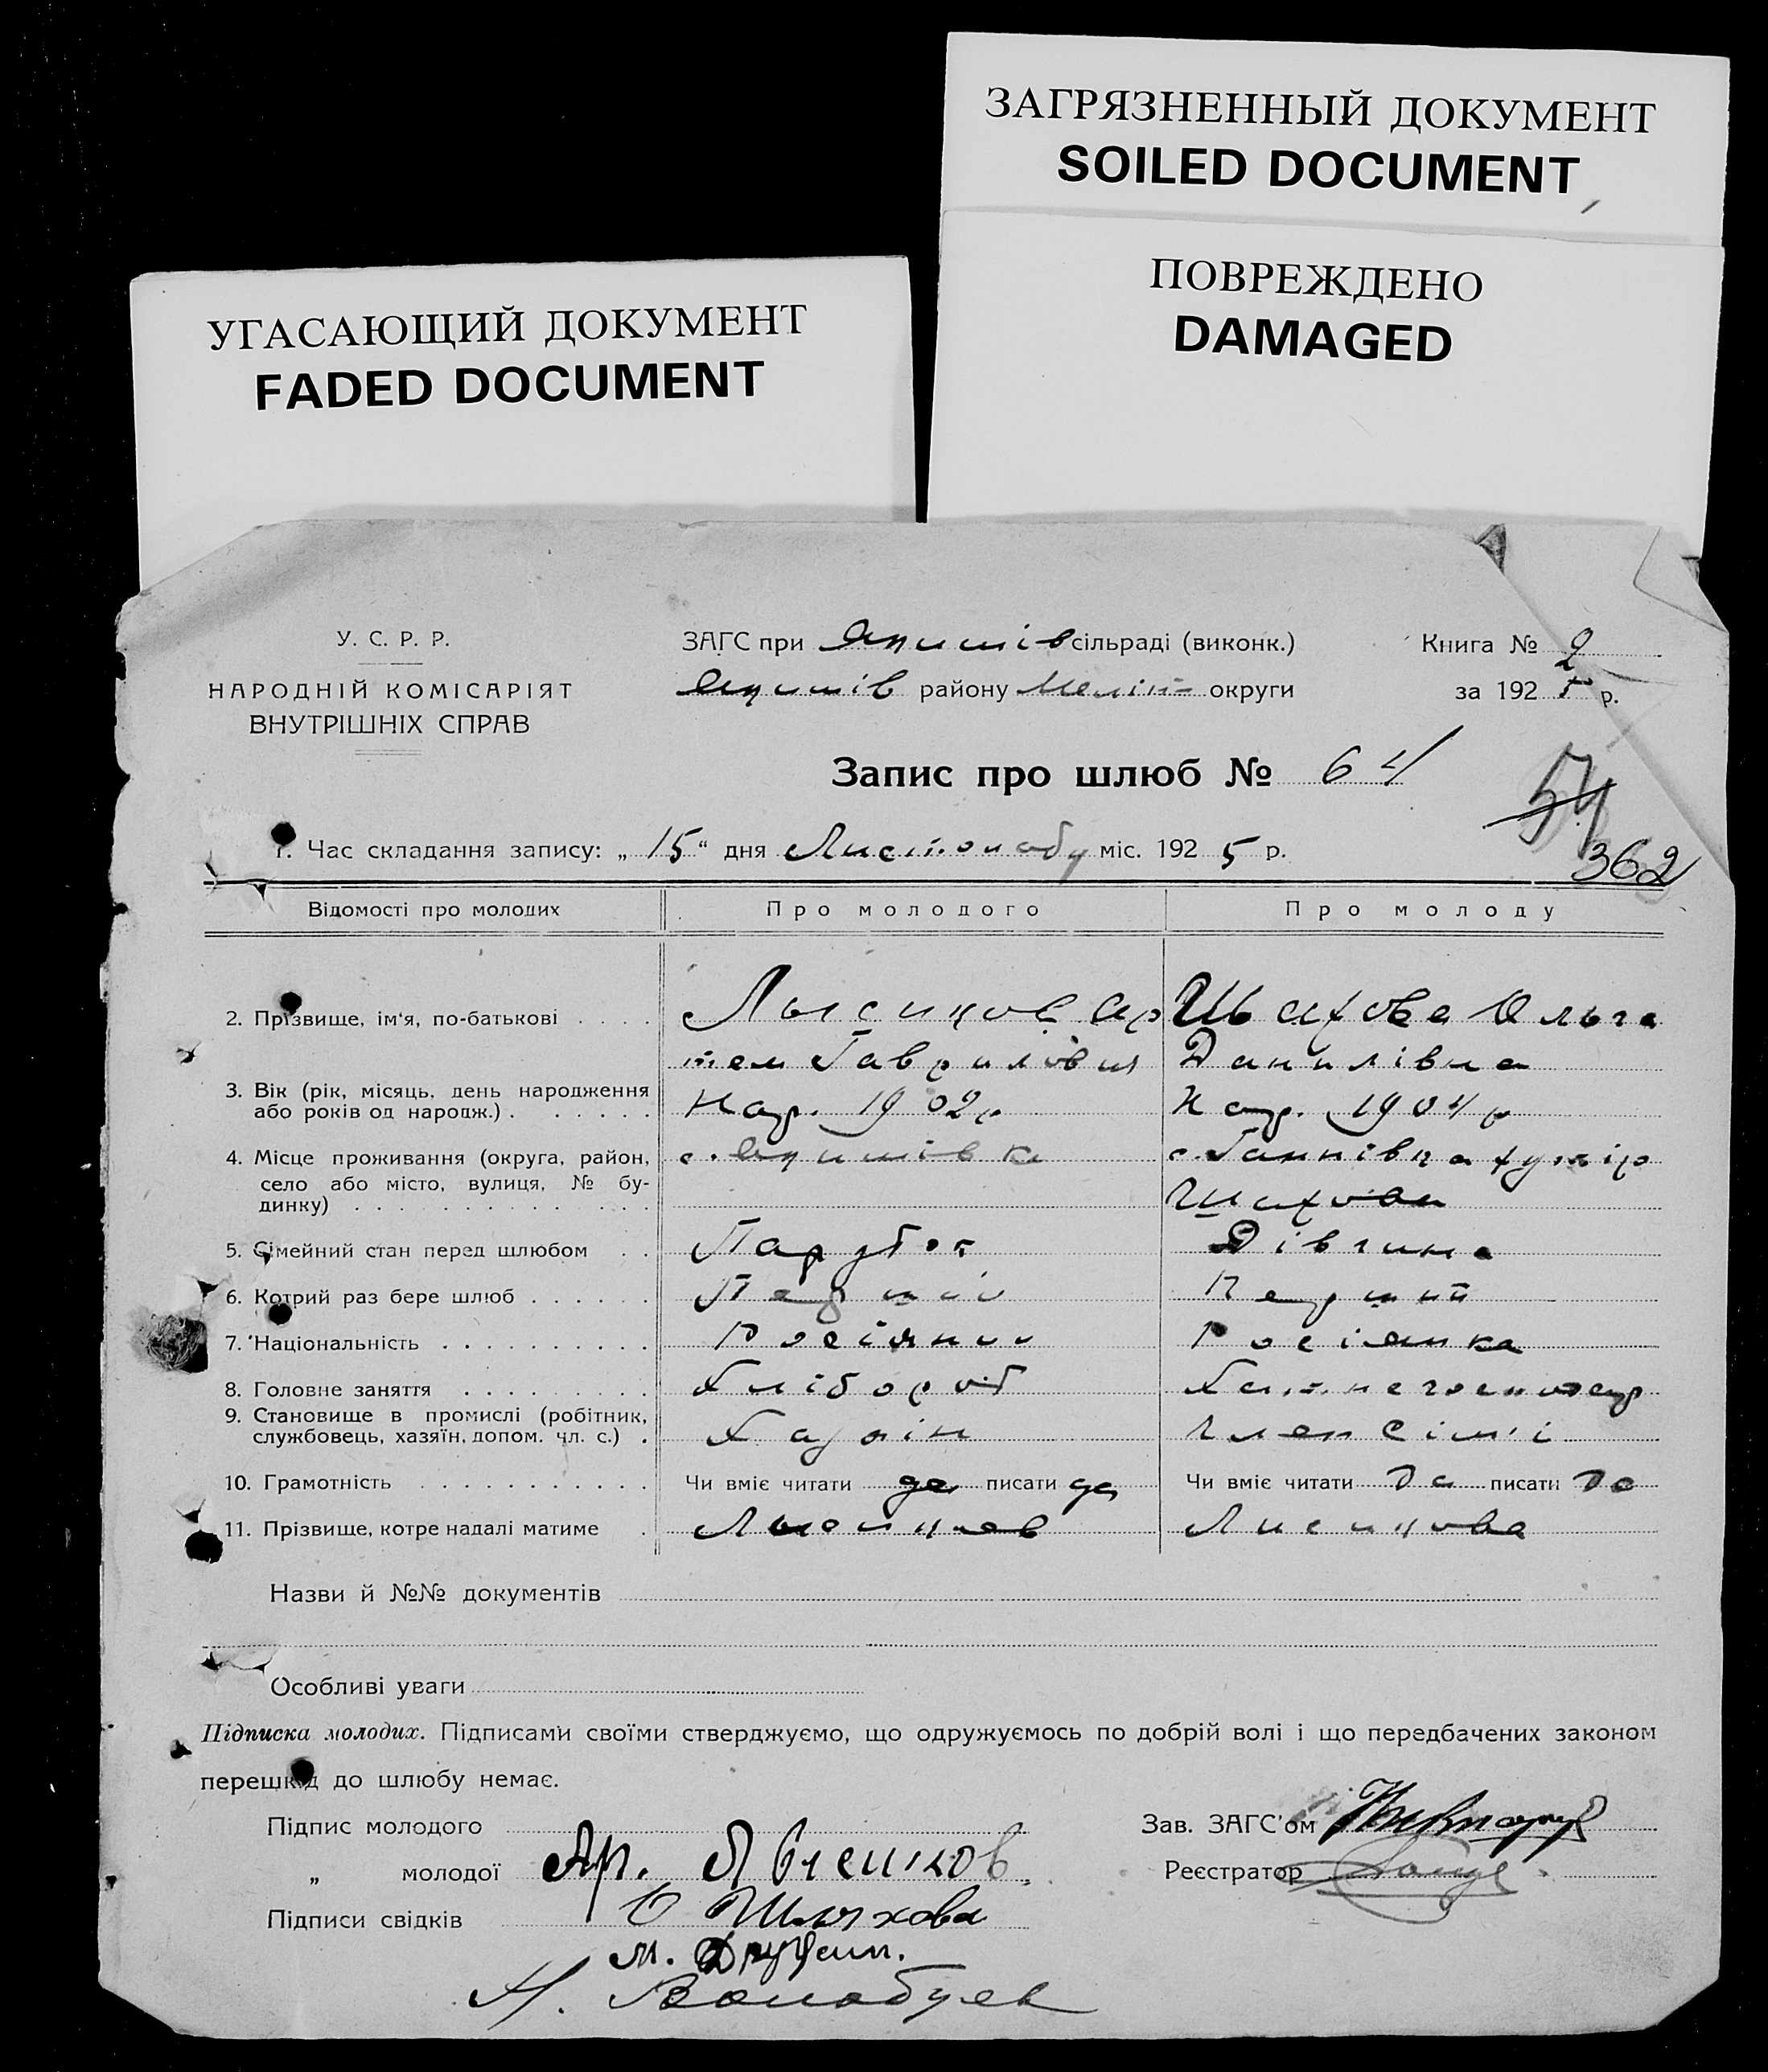 ЗАГРЯЗНЕННЫЙ ДОКУМЕНТ
SOILED DOCUMENT
ПОВРЕЖДЕНО
DAMAGED
УГАСАЮЩИЙ ДОКУМЕНТ
FADED DOCUMENT
У. С. Р. Р.
НАРОДНІЙ КОМІСАРІЯТ
ВНУТРІШНІХ СПРАВ
ЗАГС при Якимів сільраді (виконк.)
Якимів району Меліт округи
Книга № 2
за 192 5 р.
Запис про шлюб № 64
54
362
1. Час складання запису: „ 15 “ дня Листопаду міс. 192 5 р.
Відомості про молодих Про молодого Про молоду
2. Прізвище, ім‘я, по-батькові . . . . Лысиков Ар Шляхова Ольга
тем Гаврилович Данилівна
3. Вік (рік, місяць, день народження
або років од народж.) . . . . . . Нар. 1902 р Нар. 1904 р
4. Місце проживання (округа, район, с. Якимівка с. Ганнівка хутір
село або місто, вулиця, № бу-
динку) . . . . . . . . . . . . . Шахова
5. Сімейний стан перед шлюбом . . Парубок Дівчина
6. Котрий раз бере шлюб . . . . . . Перший Перший
7. Національність . . . . . . . . . . Росіянин Росіянка
8. Головне заняття . . . . . . . . . Хлібороб Хатне господар
9. Становище в промислі (робітник,
службовець, хазяїн, допом. чл. с.) . Хазяін Член сімʼі
10. Грамотність . . . . . . . . . . . Чи вміє читати да писати да Чи вміє читати Да писати Да
11. Прізвище, котре надалі матиме . Лысиков Лисикова
Назви й №№ документів
Особливі уваги
Підписка молодих. Підписами своїми стверджуємо, що одружуємось по добрій волі і що передбачених законом
перешкод до шлюбу немає.
Підпис молодого
„ молодої Ар. Лысиков
Підписи свідків О Шляхова
М.
Н. Волобуев
Зав. ЗАГС’ом
Реєстратор